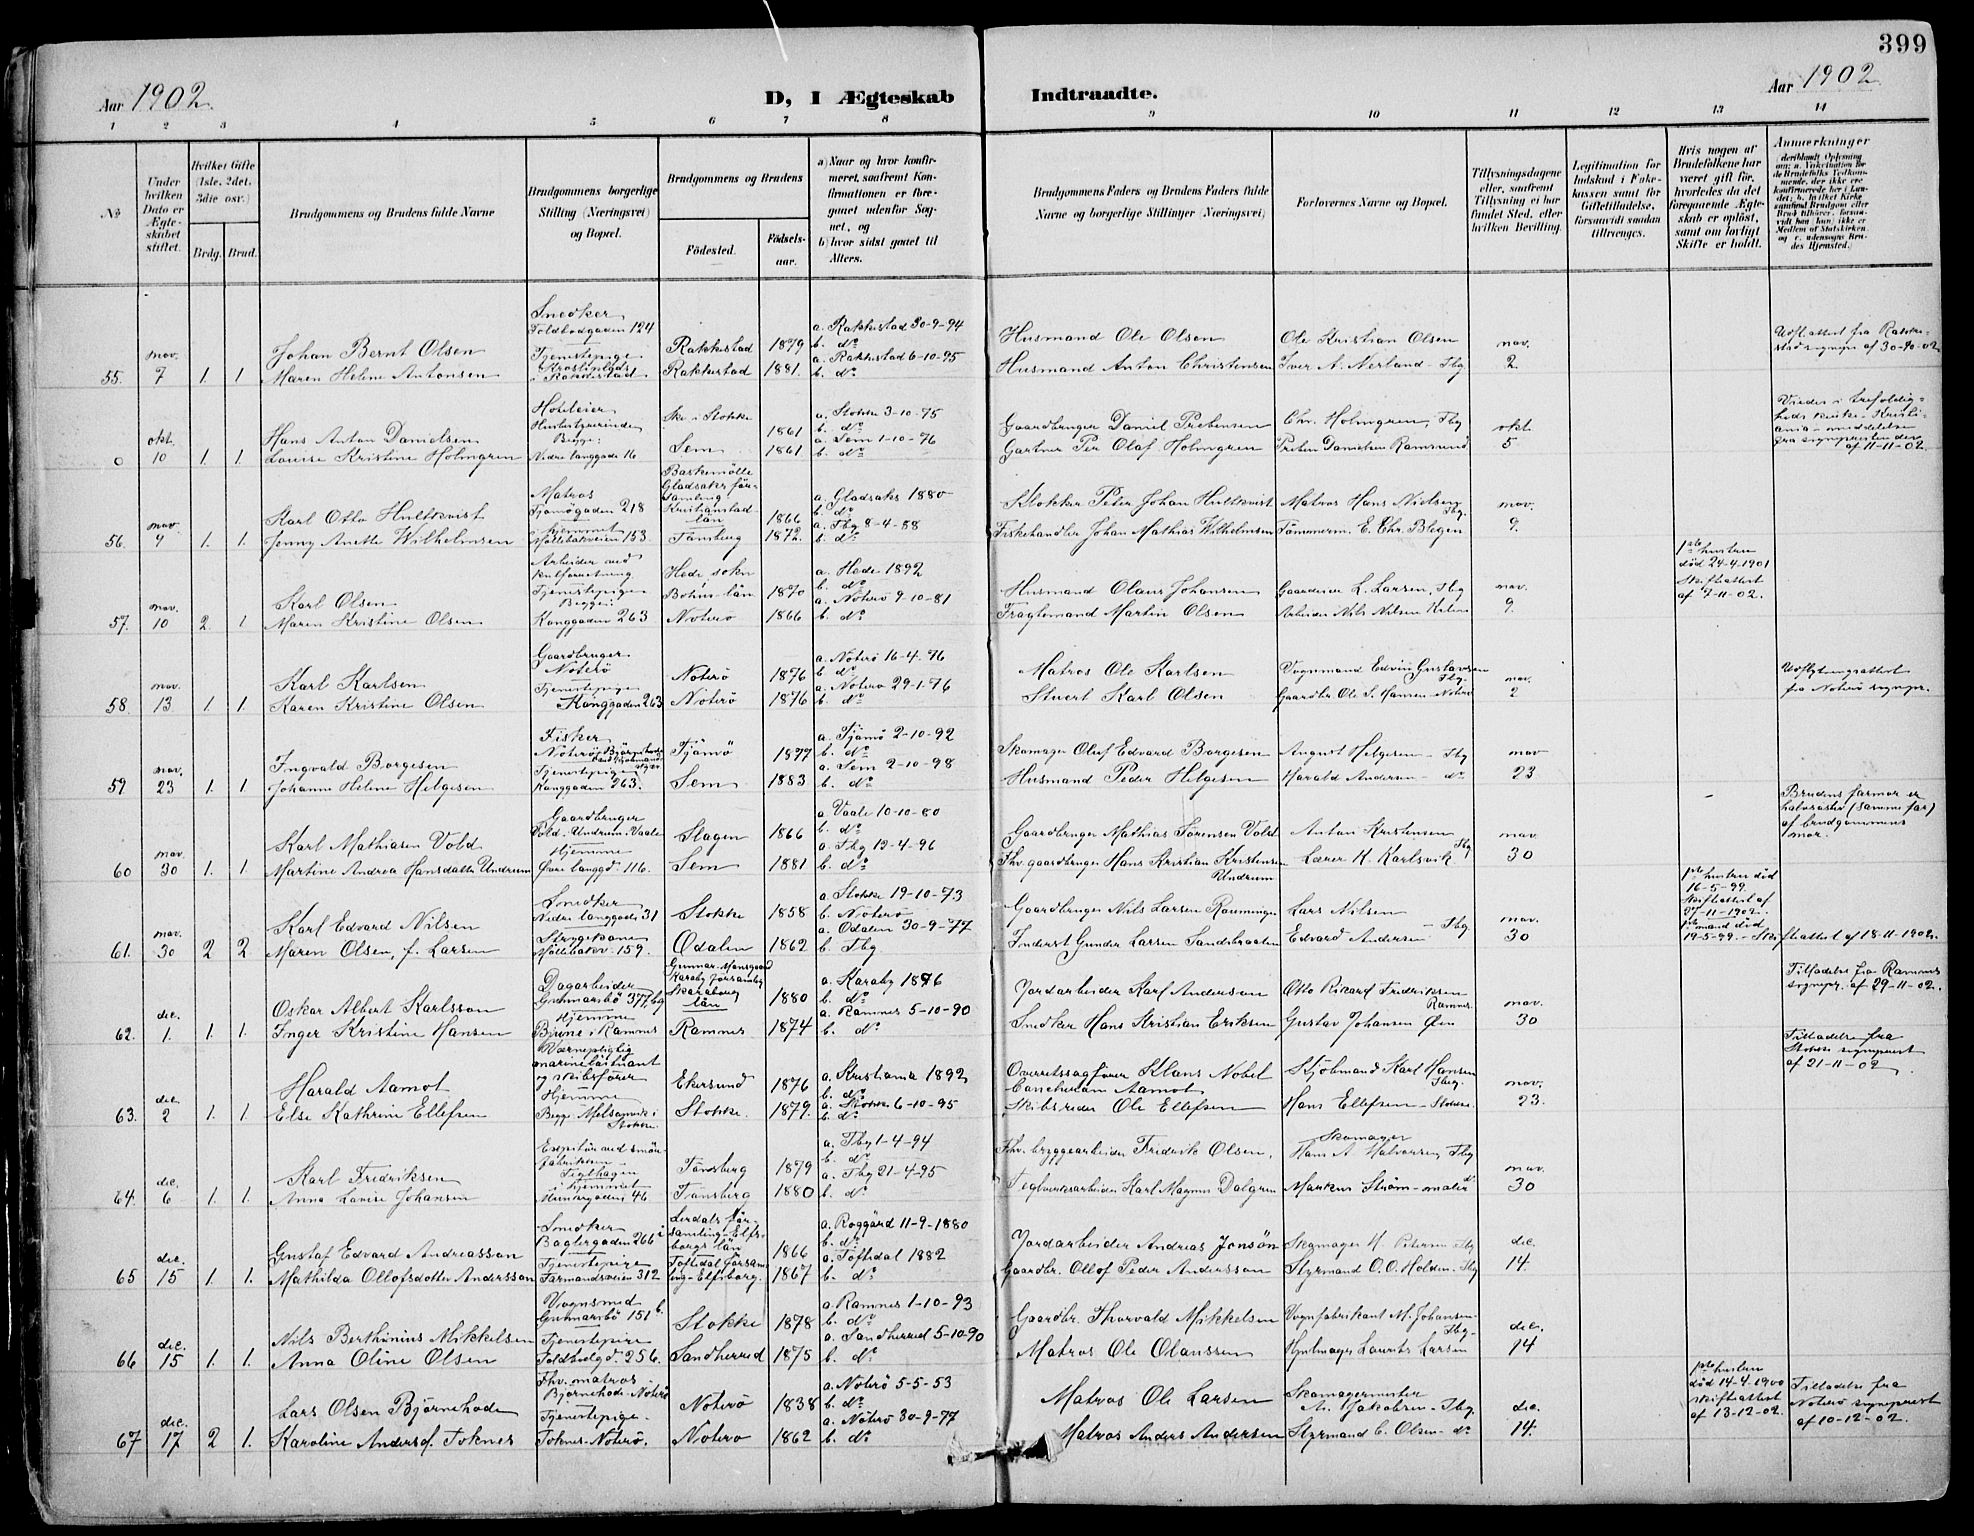 399
Aar 1902.
D, I Ægteskab Indtraadte.
Aar 1902.
1 2 3 4 5 6 7 8 9 10 11 12 13 14
No
Under hvilken Dato er Ægteskabet stiftet.
Hvilket Gifte (1ste, 2det, 3die osv.)
Brdg. Brud.
Brudgommens og Brudens fulde Navne
Brudgommens borgerlige Stilling (Næringsvei) og Bopæl.
Brudgommens og Brudens
Fødested.
Fødselsaar.
a) Naar og hvor konfirmeret, saafremt Konfirmationen er foregaaet udenfor Sognet, og
b) hvor sidst gaaet til Alters.
Brudgommens Faders og Brudens Faders fulde Navne og borgerlige Stillinger (Næringsvei)
Forlovernes Navne og Bopæl.
Tillysningsdagene eller, saafremt Tillysning ei har fundet Sted, efter hvilken Bevilling.
Legitimation for Indskud i Enkekassen samt for Giftetilladelse, forsaavidt saadan tiltrænges.
Hvis nogen af Brudefolkene har været gift før, hvorledes da det foregaaende Ægteskab er opløst, samt om lovligt Skifte er holdt.
Anmærkninger
55. nov. 7 1. 1
Johan Bernt Olsen
Maren Helene Antonsen
Snedker
Toldbodgaden 124
Tjenestepige
i Rakkestad
Rakkestad 1879
Rakkestad 1881.
a. Rakkestad 30-9-94
b. do
a. Rakkestad 6-10-95
b. do
Husmand Ole Olsen
Husmand Anton Christensen
Ole Kristian Olsen
Iver A. Nerland - Tbg
nov. 2.
Udfl.attest fra Rakkestad sognepr. af 30-10-02
0 okt. 10 1. 1.
Hans Anton Danielsen
Louise Kristine Holmgren
Hoteleier
Husbestyrerinde
Begge:
Nedre langgade 16
Ske i Stokke 1861
Sem 1861
a. Stokke 3-10-75
b. do
a. Sem 1-10-76
b. do
Gaardbruger Daniel Prebensen
Gartner Per Olaf Holmgren
Chr. Holmgren, Tbg
Preben Danielsen Ramsund
okt. 5
Viede i trefoldigheds kirke - Kristiania - meddelelse fra sognepresten derst. af 11-11-02.
56. nov. 9 1. 1.
Karl Otto Hultkvist
Jenny Anette Wilhelmsen
Matros
Tjømøgaden 218
i hjemmet
Møllebakveien 153.
Baskemölle
Gladsaks församling
Kristianstad län 1866
Tønsberg 1872.
a. Gladsaks 1880
b. do
a. Tbg 8-4-88
b. do
Klokker Peter Johan Hultkvist
Fiskehandler Johan Mathias Wilhelmsen
Matros Hans Nielsen Tbg.
Tømmerm. E. Chr. Blegen
nov. 9.
57. nov. 10 2. 1
Karl Olsen
Maren Kristine Olsen
Arbeider ved kulforretning
Tjenestepige
Begge:
Konggaden 263
Hede sokn
Bohus län 1870
Nøterø 1866
a. Hede 1892
b. do
a. Nøterø 9-10-81
b. do
Husmand Olaus Johansen
Fragtemand Martin Olsen
Gaardeier L. Larsen, Tbg
Arbeider Nils Nilsen
nov. 9.
1ste hustru død 24-4-1901
Skifteattest af 7-11-02.
58. nov. 13 1. 1
Karl Karlsen
Karen Kristine Olsen
Gaardbruger
Nøterø
Tjenestepige
Konggaden 263
Nøterø 1876
Nøterø 1876
a. Nøterø 16-4-76
b. do
a. Nøterø 29-1-76
b. do
Matros Ole Karlsen
Stuert Karl Olsen
Vognmand Edvin Gustavsen Tbg.
Gaardbr. Ole S. Hansen - Nøterø
nov. 2
Udflytningsattest fra Nøterø sognepr.
59 nov. 23 1. 1
Ingvald Borgesen
Johanne Helene Helgesen
Fisker
Tjenestepige
Konggaden 263.
Tjømø 1877
Sem 1883
a. Tjømø 2-10-92
b. do
a. Sem 2-10-98
b. do
Skomager Oluf Edvard Borgesen
Husmand Peder Helgesen
August Helgesen - Tbg
Harald Andersen - do
nov 23
60 nov. 30 1. 1
Karl Mathiasen Vold
Martine Andrea Hansdatter Undrum
Gaardbruger
Vold - Undrum i Vaale
Hjemme
Øvre langgd. 116.
Slagen 1866
Sem 1881
a. Vaale 10-10-80
b. do
a. Tbg 12-4-96
b. do
Gaardbruger Mathias Sørensen Vold
Fhv. gaardbruger Hans Kristian Kristensen Undrum
Anton Kristensen Tbg
Lærer K. Karlsvik
nov. 30
Brudens farmor er halvsøster (samme far) af brudgommens mor.
61. nov. 30 2 2
Karl Edvard Nilsen
Maren Olsen, f. Larsen
Snedker
Nedre langgade 31
Strygekone
Møllebakv. 159.
Stokke 1858
Odalen 1862
a. Stokke 19-10-73
b. Nøterø
a. Odalen 30-9-77
b. Tbg
Gaardbruger Nils Larsen Raumingen
Inderst Gunder Larsen Sandsbraaten
Lars Nilsen
Edvard Andersen - Tbg
nov. 30
1ste hustru død 16-5-99.
Skifteattest af 27-11-1902.
1ste mand død 19-5-99 - Skifteattest af 18-11-1902.
62. dec. 1. 1. 1.
Oskar Albert Karlsson
Inger Kristine Hansen
Dagarbeider
Gunnarsbø 377, Tbg
Hjemme
Bjune i Ramnes
Skaraborg län 1880
Ramnes 1874
a. Karaby 1896
b. do
a. Ramnes 5-10-90
b. do
Jordarbeider Karl Anderson
Snedker Hans Kristian Eriksen
Otto Rikard Fredriksen Ramnes
Gustav Johansen Øen
nov. 30
Tilladelse fra Ramnes sognepr. af 29-11-02.
63. dec. 2 1. 1.
Harald Aamot
Else Kathrine Ellefsen
Værnepligtig marineløitnant og skibsfører
Hjemme
Begge Melsomvik i Stokke.
Ekersund 1876
Stokke 1879.
a. Kristiania 1892
b. do
a. Stokke 6-10-95
b. do
Overretssagfører Klaus Nobel Cancheran Aamot
Skibsreder Ole Ellefsen
Kjøbmand Karl Hansen Tbg.
Hans Ellefsen - Stokke
nov. 23.
Tilladelse fra Stokke sogneprest af 21-11-02.
64. dec. 6 1. 1.
Karl Fredriksen
Anna Lovise Johansen
Expeditør ved smørfabriken
Teglhagen
i Hjemmet
Munkegaden 46
Tønsberg 1879
Tønsberg 1880
a. Tbg 1-4-94
b. do
a. Tbg 21-4-95
b. do
Fhv. bryggearbeider Fredrik Olsen,
Teglverksarbeider Karl Magnus Dalgren
Skomager Hans A. Halvorsen, Tbg
Markus Strøm - maler do
nov. 30
65 dec. 15 1. 1.
Gustaf Edvard Andreasson
Mathilda Ollofsdotter Andersson
Snedker
Baglergaden 266 i
Tjenestepige
Farmandsveien 312
Lerdals församling - Elfsborgs län 1866
Töftedal församling - Elfsborg. 1867
a. Roggärd 11-9-1880
b. do
a. Töftedal 1882
b. do
Jordarbeider Andreas Jonsön
Gaardbr. Ollof Peder Andersson
Skomager K. Petersen Tbg
Styrmand O. O. Holden - Tbg
dec. 14.
66 dec. 15 1. 1.
Nils Berthinius Mikkelsen
Anna Oline Olsen
Vognsmed
Gunnarsbø 151 b.
Tjenestepige
Toldbodgd. 256.
Stokke 1878
Sandherred 1875
a. Ramnes 1-10-93
b. do
a. Sandherred 5-10-90
b. do
Gaardbr. Thorvald Mikkelsen
Matros Ole Olaussen
Vognfabrikant M. Johansen - Tbg -
Hjulmager Laurits Larsen
dec. 14
67 dec. 17 2 1.
Lars Olsen Bjørnehode
Karoline Andersd. Toknes
Fhv. matros
Bjørnehode - Nøterø
Tjenestepige -
Toknes - Nøterø.
Nøterø 1838
Nøterø 1862
a. Nøterø 5-5-53
b. do
a. Nøterø 30-9-77
b. do
Matros Ole Larsen
Matros Anders Andersen
Skomagermester A. Jakobsen - Tbg.
Styrmand C. Olsen - do
dec. 14.
1ste hustru død 14-4-1900 skifteattest af 13-12-02.
Tilladelse fra Nøterø sogneprest af 10-12-02.